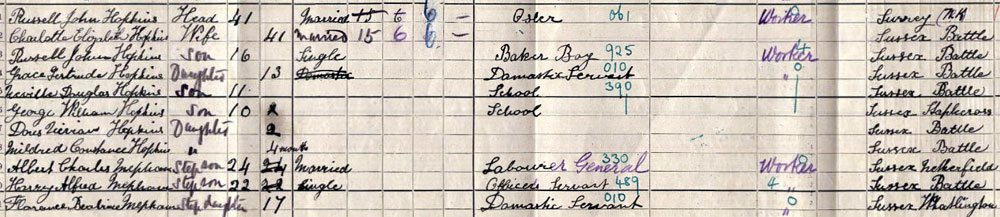 Russell John Hopkins Head 41 Married 15 6 6 – Osler 061 Worker Surrey (N.K)
Charlotte Hopkins Wife 41 Married 15 6 6 – Sussex Battle
Russell James Hopkins Son 16 Single Baker Boy 925 Worker Sussex Battle
Grace Gertrude Hopkins Daughter 13 Domastic Damastic Servant 010 " 0 Sussex Battle
Neville Douglas Hopkins Son 11 School 390 Sussex Battle
George William Hopkins Son 10 School Sussex Staplecross
Doris Vievian Hopkins Daughter 2 Sussex Battle
Mildred Constance Hopkins " 4 month Sussex Battle
Albert Charles Mepham Step son 24 24 Married Labourer General 330 Worker Sussex Netherfield
Harry Alfred Mepham Step son 22 22 Single Officers Servant 489 4 " Sussex Battle
Florance Beatrice Mepham Step Daughter 17 Damastic Servant 010 0 " Sussex Whatlington